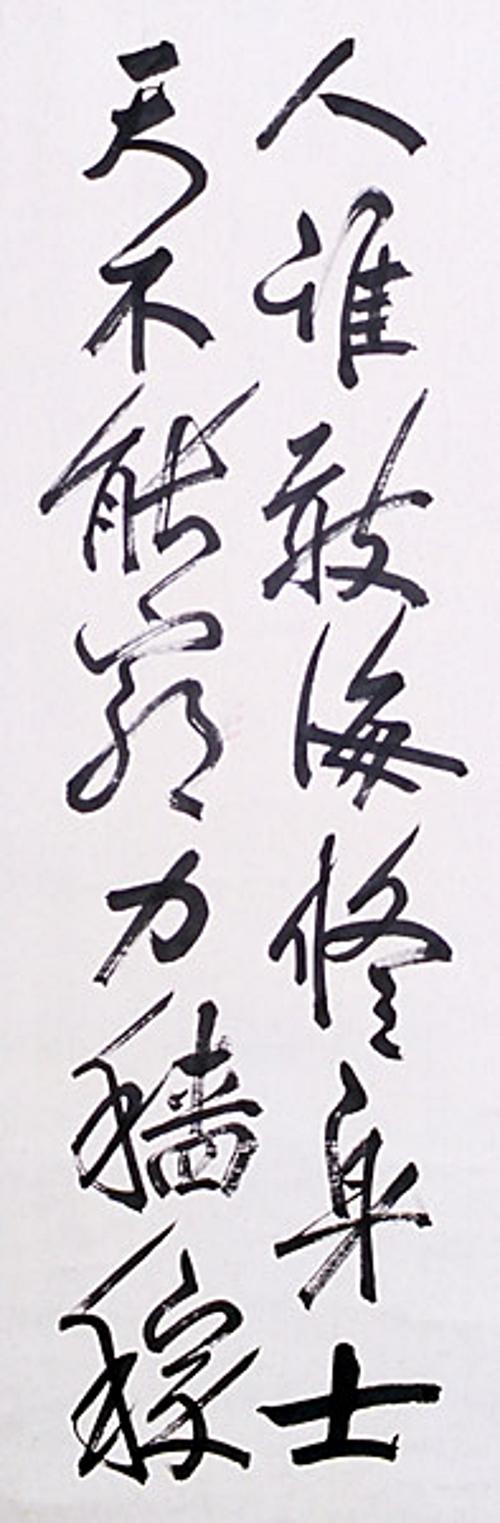 人誰敢侮修身士
天不能窮力穡稼